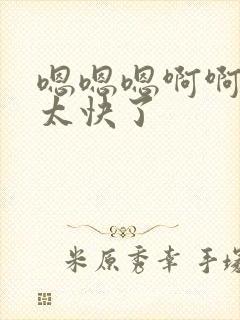 嗯嗯嗯啊啊
太快了
米原秀幸 手塚